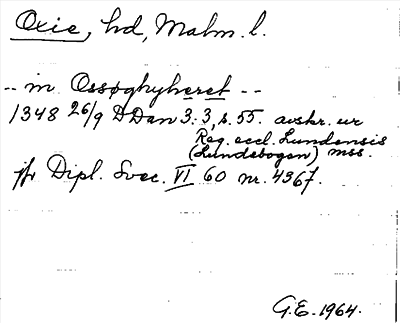 Oxie, hd, Malm. l.
-- in Ossøghyheret --
1348 26/9 DDan 3:3, s. 55. avskr. ur
Reg. eccl. Lundensis
(Lundebogen) mss.
jfr Dipl. Svec. VI 60 nr. 4367.
G.E. 1964.